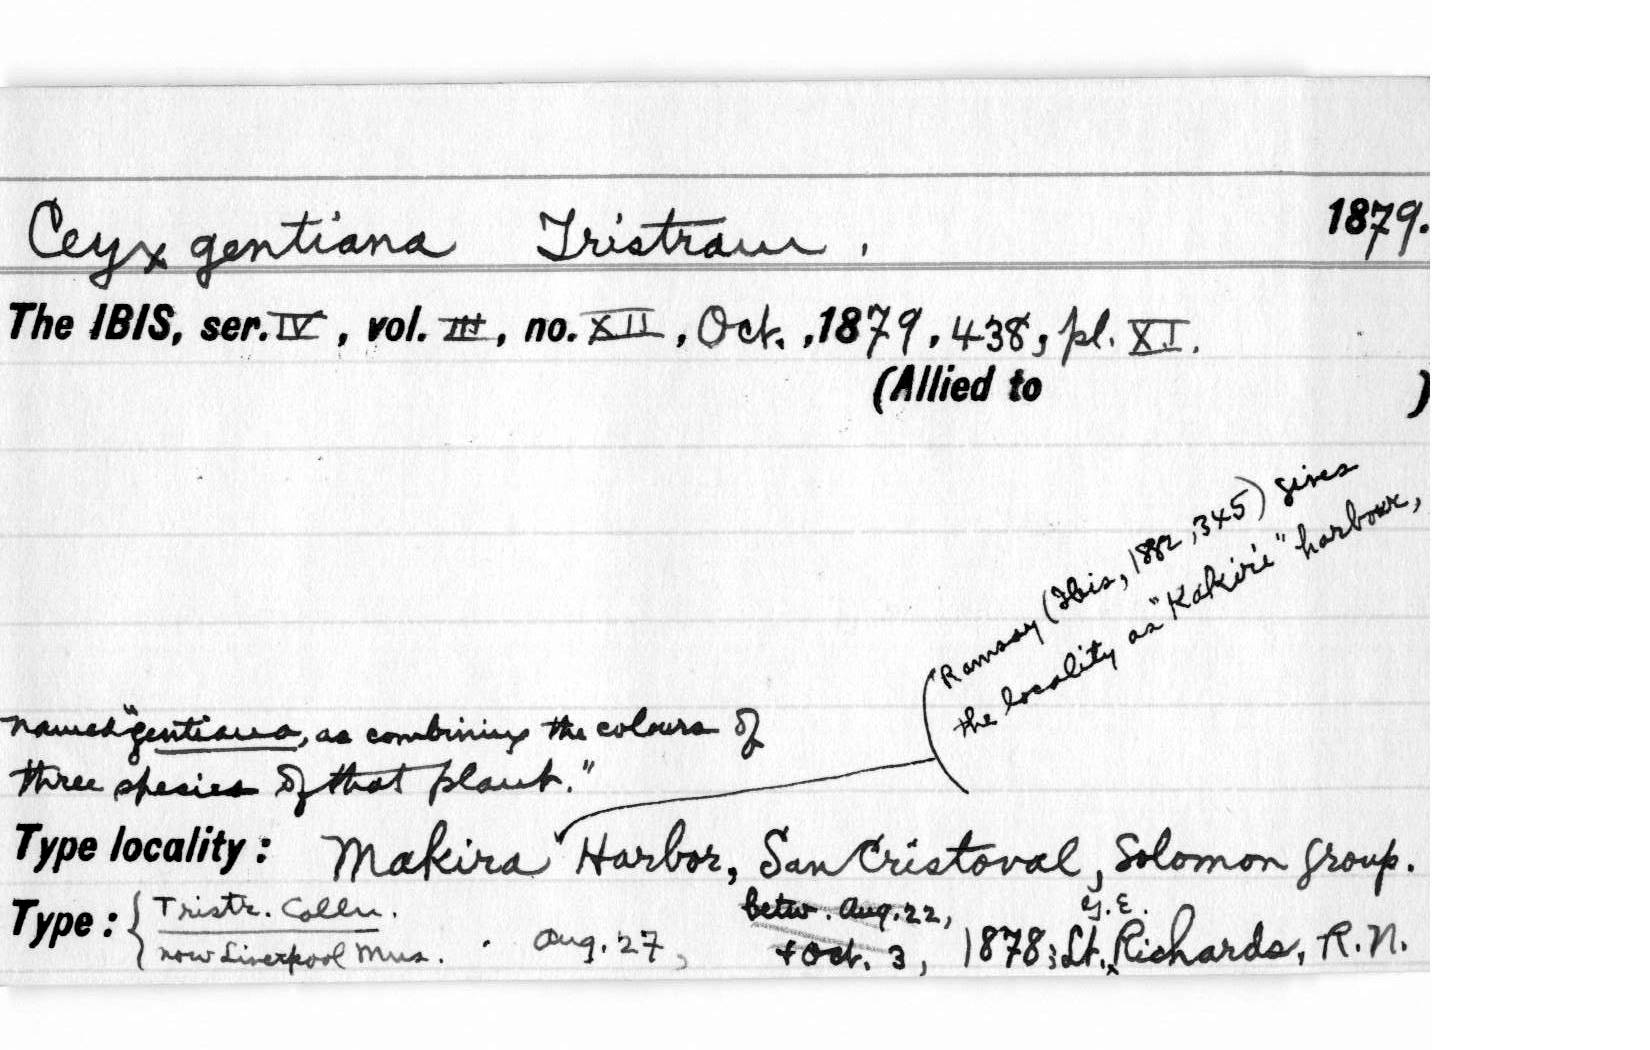 Ceyx gentiana Tristram. 1879.
The IBIS, ser. IV, vol. III, no. XII, Oct., 1879, 438, pl. XI.
(Allied to )
Ramsay (Ibis, 1882, 345) gives
the locality as "Kakire" harbour,
named "gentiana, as combining the colours of
three species of that plant."
Type locality: Makira Harbor, San Cristoval, Solomon group.
Type: { Tristr. Colln.
now Liverpool Mus. . Aug. 27, betw. Aug. 22,
+ Oct. 3, 1878; Lt. G.E. Richards, R.N.